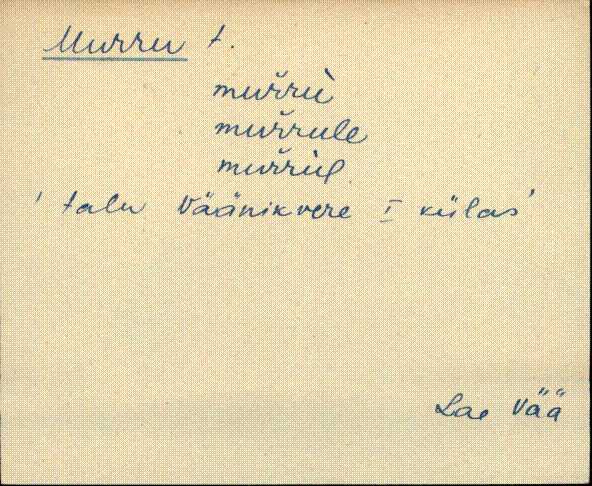 Murru t.
muřrù
muřrule
muřrùl
' talu Väänikvere I külas'
Lai Vää